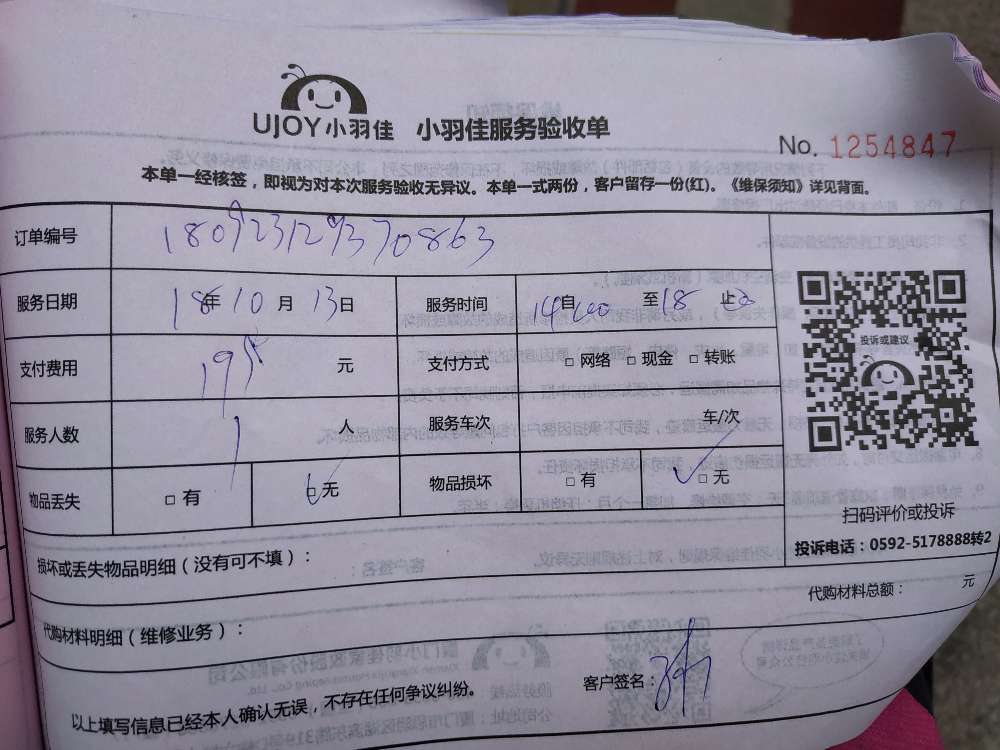 UJOY小羽佳 小羽佳服务验收单
No. 1254847
本单一经核签，即视为对本次服务验收无异议。本单一式两份，客户留存一份(红)。《维保须知》详见背面。
订单编号 180923129370863
服务日期 18年10月13日 服务时间 自14:00至18止
支付费用 195元 支付方式 □网络 □现金 □转账
投诉或建议
服务人数 1人 服务车次 车/次
物品丢失 □有 ☑无 物品损坏 □有 ☑无
扫码评价或投诉
投诉电话：0592-5178888转2
损坏或丢失物品明细（没有可不填）：
代购材料总额： 元
代购材料明细（维修业务）：
客户签名：
以上填写信息已经本人确认无误，不存在任何争议纠纷。